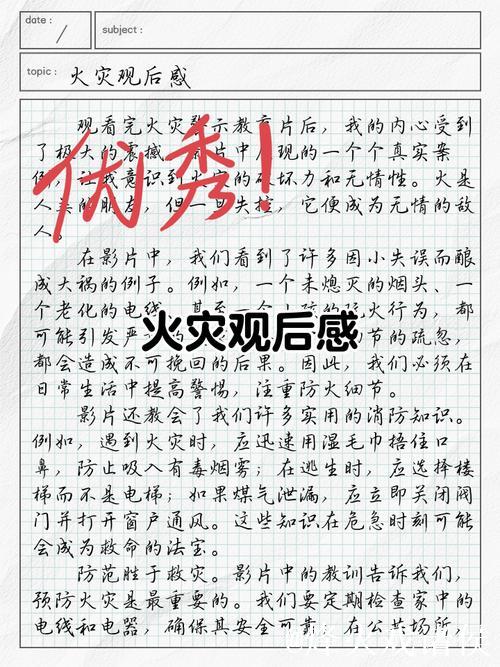 date :
subject :
topic : 火灾观后感
观看完火灾警示教育片后，我的内心受到
了极大的震撼。片中展现的一个个真实案
例，让我意识到火灾的破坏力和无情性。火是
人类的朋友，但一旦失控，它便成为无情的敌
人。
优秀！
在影片中，我们看到了许多因小失误而酿
成大祸的例子。例如，一个未熄灭的烟头、一
个老化的电线、甚至一个小孩的玩火行为，都
可能引发严 的 节的疏忽，
火灾观后感
都会造成不可挽回的后果。因此，我们必须在
日常生活中提高警惕，注重防火细节。
影片还教会了我们许多实用的消防知识。
例如，遇到火灾时，应迅速用湿毛巾捂住口
鼻，防止吸入有毒烟雾；在逃生时，应选择楼
梯而不是电梯；如果煤气泄漏，应立即关闭阀
门并打开窗户通风。这些知识在危急时刻可能
会成为救命的法宝。
防范胜于救灾。影片中的教训告诉我们，
预防火灾是最重要的。我们要定期检查家中的
电线和电器，确保其安全可靠。在公共场所，